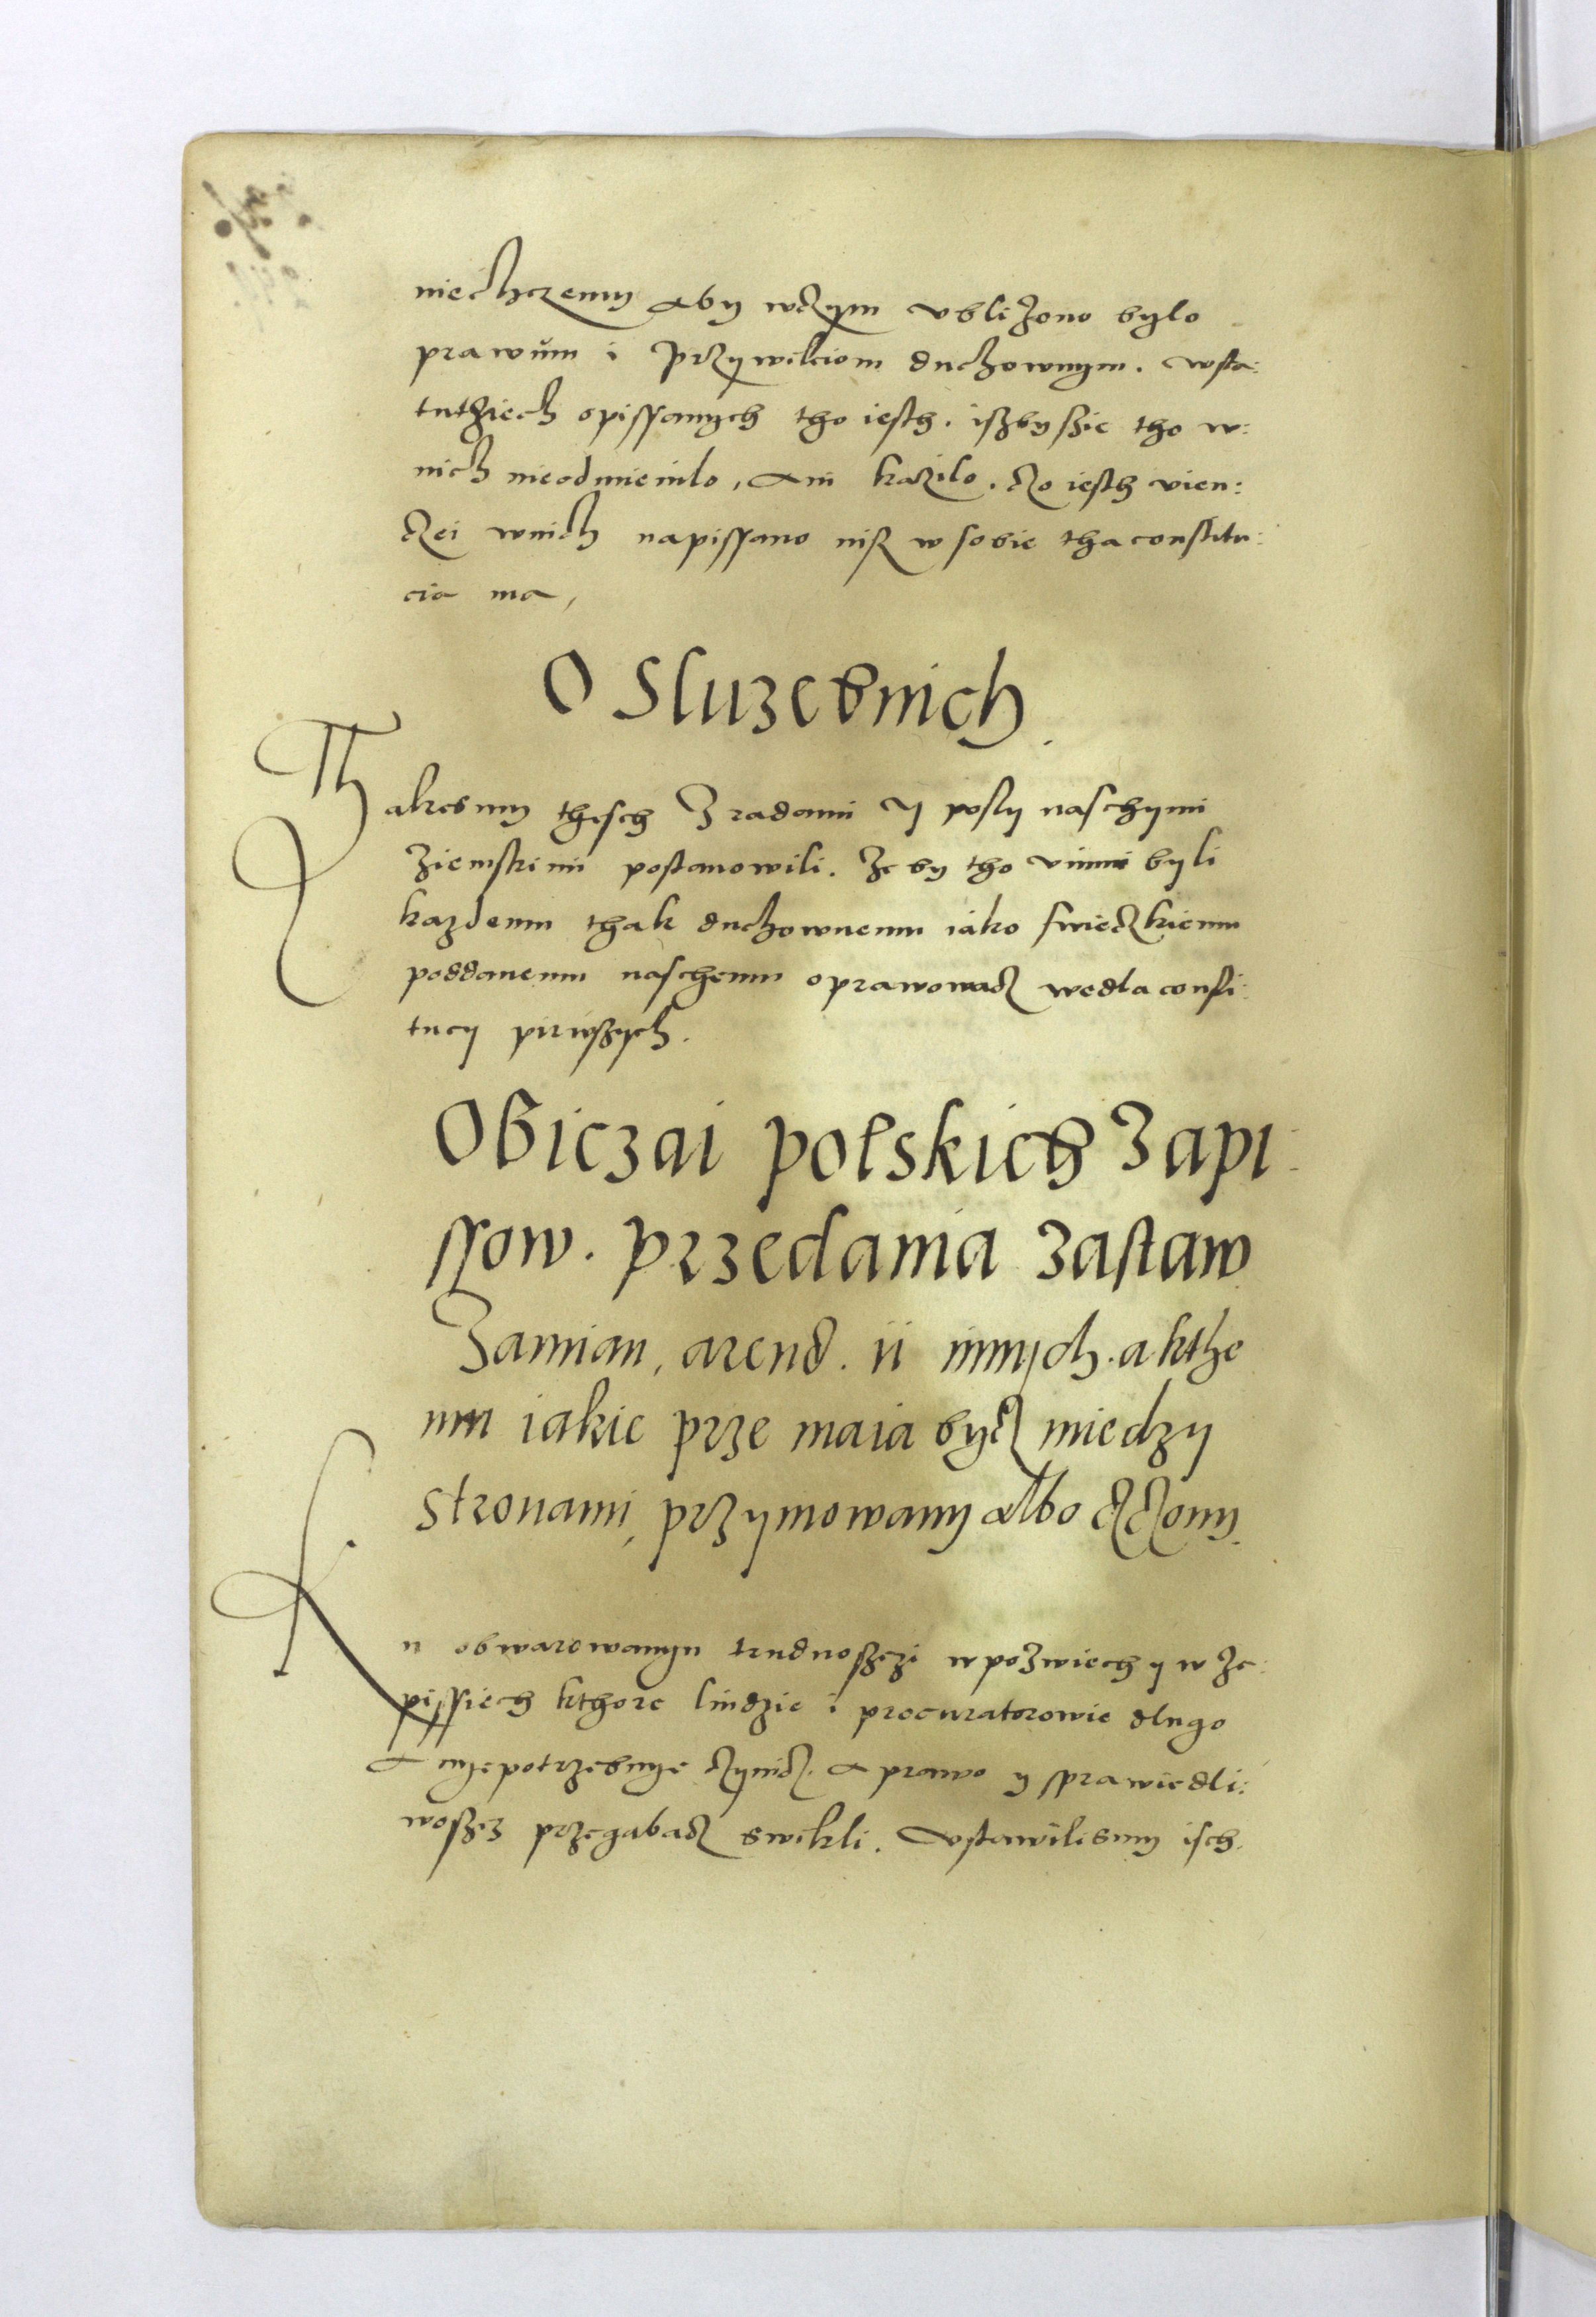 niechczemy aby wczym ubliżono bylo
prawum i Przywileiom duchownym. wsta:
tuthziech opissanych tho iesth. iszbyszie tho w:
nich nieodmienilo, ani kazilo. czo iesth vien:
czei wnich napissano nisz w sobie tha constitu:
cia ma,
O Sluzebnich.
Thakesmy thesch Z radami y posly naschymi
ziemskimi postanowili. że by tho vinni byli
kazdemu thak duchownemu iako swieczkiemu
poddanemu naschemu oprawowacz wedla consti:
tucy pirwszych.
Obiczai polskich Zapi:
ssow. przedania zastaw
Zamian, arend. ii innych. akthe
mu iakie prze maia bycz miedzy
stronami, przymowany albo czczony.
Ku obwarowanyu trudnoszczi wpozwiech y w ze:
pissiech kthore liudzie i procuratorowie dlugo
a nyepotrzebnye czynicz. a prawo y sprawiedli:
woszcz przegabacz swikli. Ustawilismy isch.